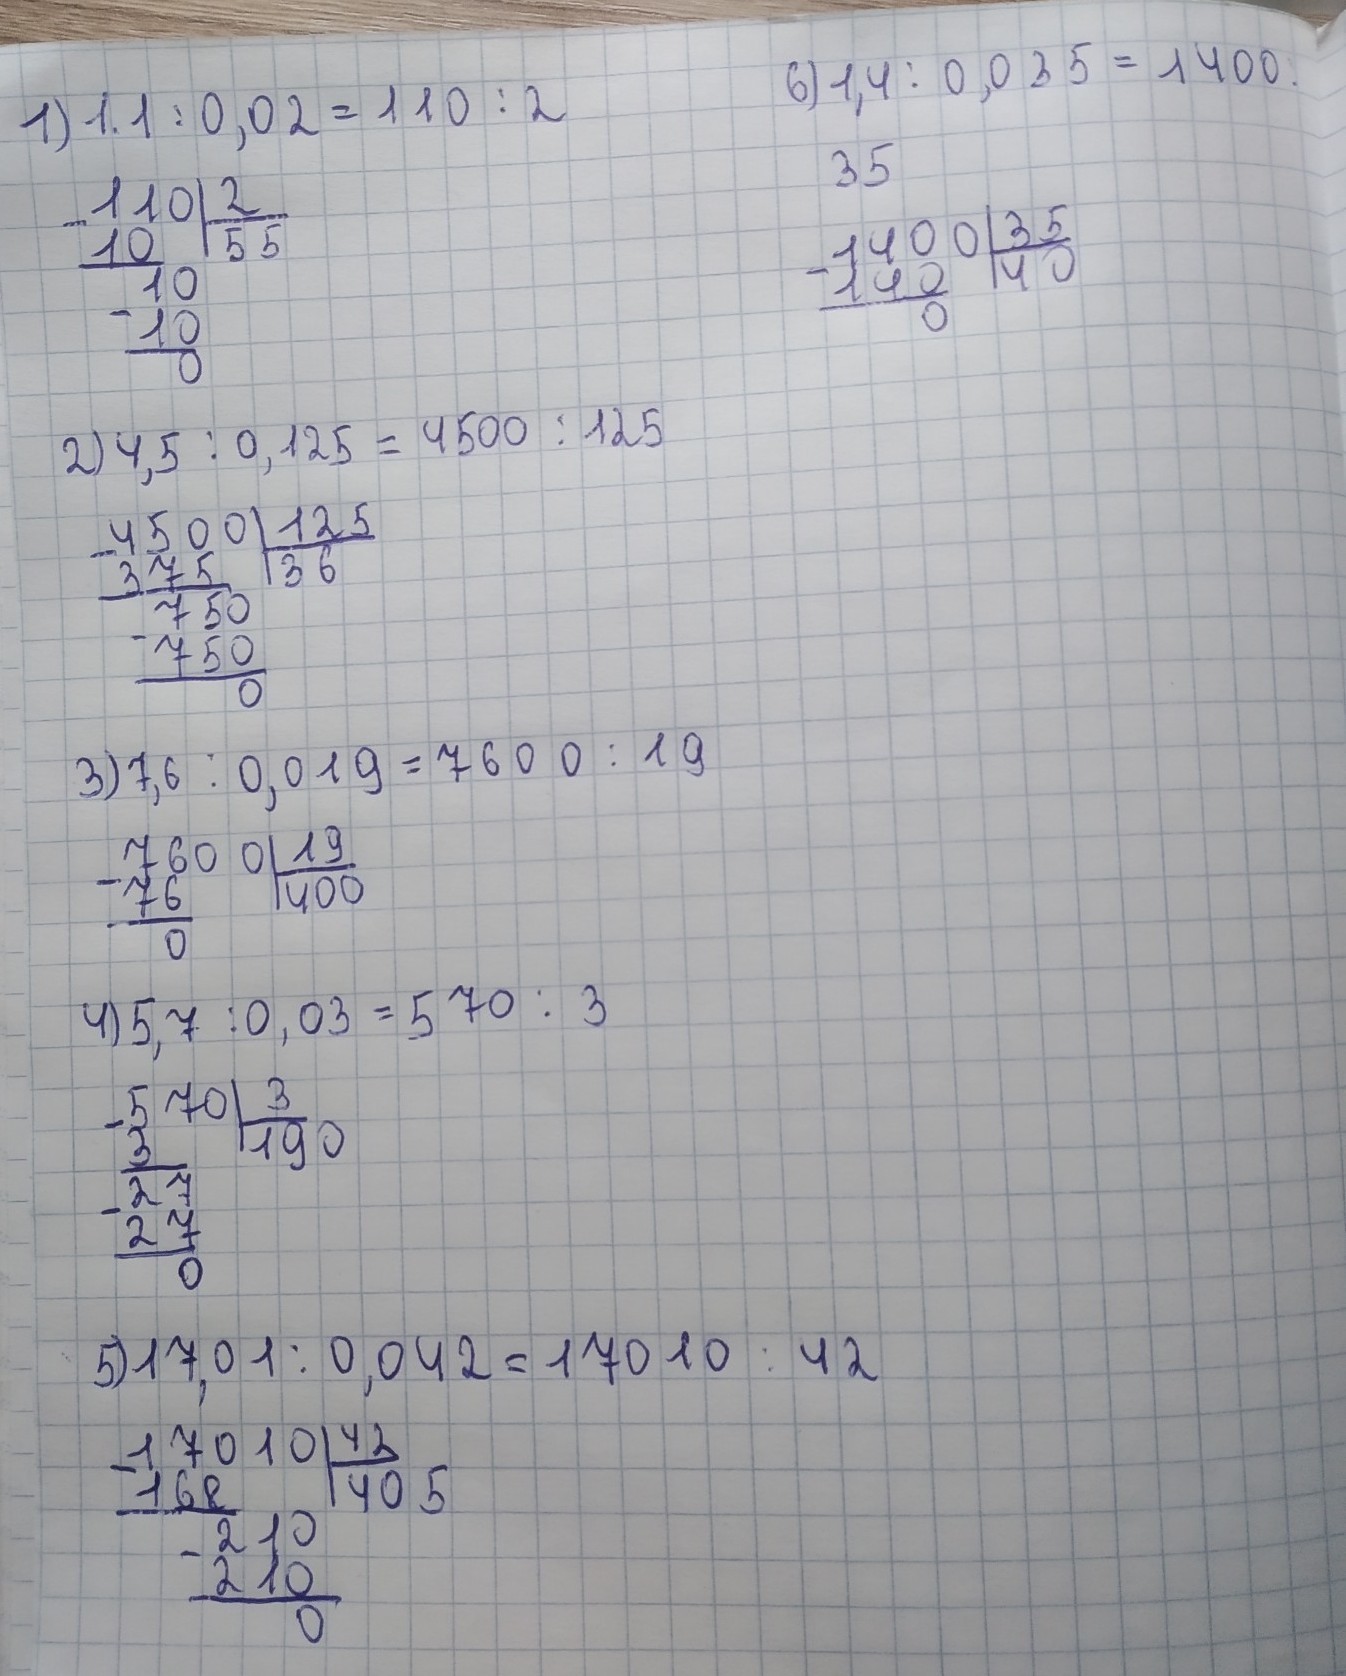 1) 1.1 : 0,02 = 110 : 2
-110 | 2
10 | 55
10
-10
0
2) 4,5 : 0,125 = 4500 : 125
-4500 | 125
375 | 36
750
-750
0
3) 7,6 : 0,019 = 7600 : 19
-7600 | 19
76 | 400
0
4) 5,7 : 0,03 = 570 : 3
-570 | 3
3 | 190
-27
27
0
5) 17,01 : 0,042 = 17010 : 42
-17010 | 42
168 | 405
-210
210
0
6) 1,4 : 0,035 = 1400 :
35
-1400 | 35
140 | 40
0